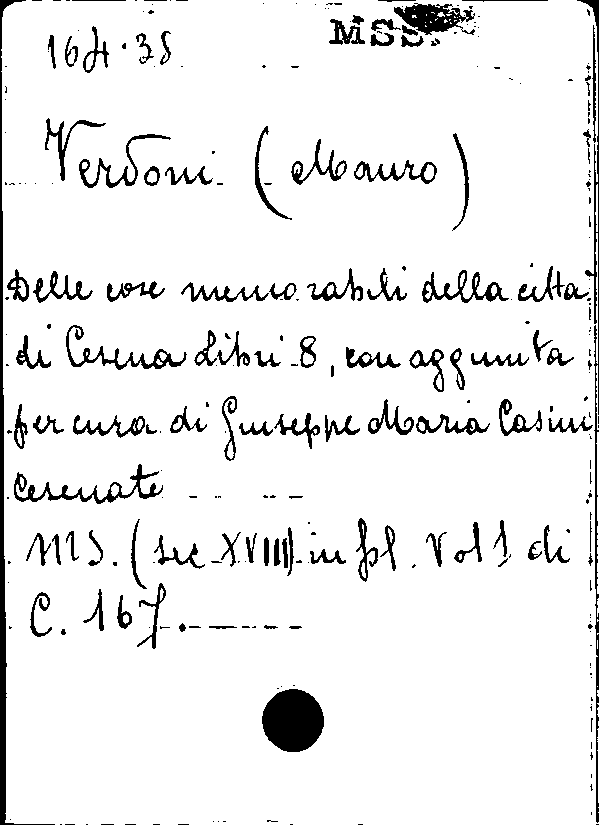 164.38 MSS.
Verdoni (Mauro)
Delle cose memorabili della città
di Cesena Libri 8, con aggiunta
per cura di Giuseppe Maria Casini
Cesenate
MS. (sec XVIII) in fol. Vol 1 di
C. 167.